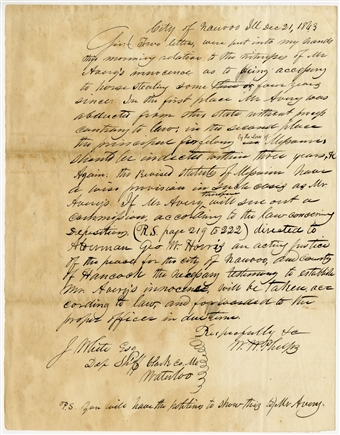 City of Nauvoo Ill Dec 21, 1843
Sir (Two letters were put into my hands
this morning relation to the witnesses of Mr
Avery's innocence as to being accessory
to horse stealing some three or four years
since. In the first place Mr Avery was
abducted from this state without
contrary to law; in the second place
the principal for felony in Missouri
by the Laws of
should be indicted within three years, &c
Again. the Revised Statute of Missouri have
a wise provision in such cases as Mr
Avery's. If Mr Avery will sue out a
commission, according to the law concerning
deposition, (R.S. page 219 to 222) directed to
Alderman Geo W. Harris an acting Justice
of the peace for the city of Nauvoo, and County
of Hancock the necessary testimony to establish
Mr. Avery's innocence, will be taken, acc
ording to law, and forwarded to the
proper officer in due time.
Respectfully &c
J White Esq W. W. Phelps
Dep Shff Clark Co, Mo
Waterloo
P.S. You will have the politeness to show this to Mr Avery.